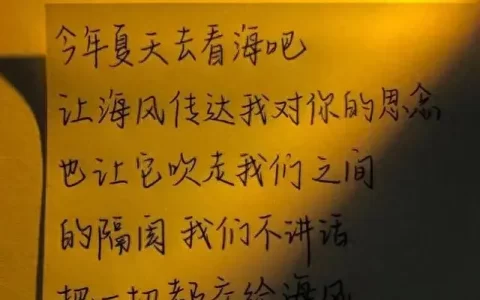 今年夏天去看海吧
让海风传达我对你的思念
也让它吹走我们之间
的隔阂 我们不讲话
把一切都交给海风